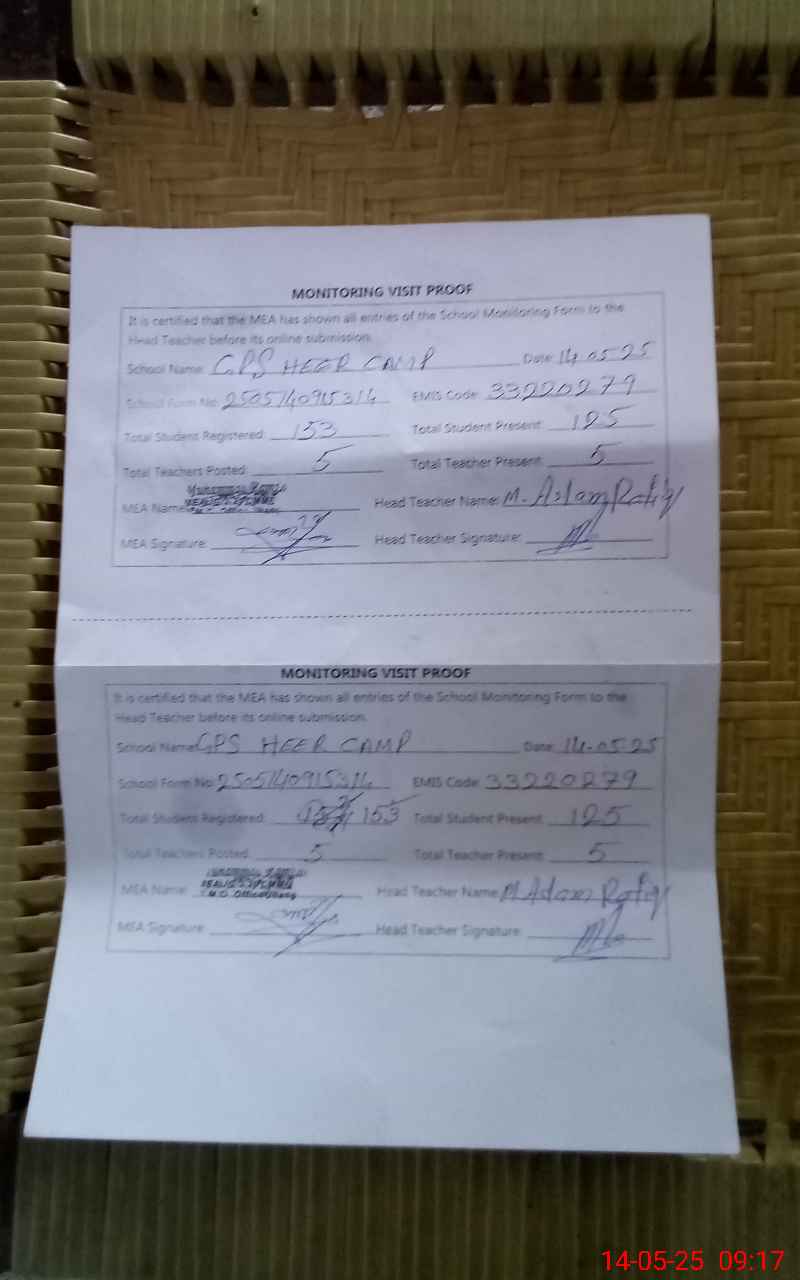 MONITORING VISIT PROOF
It is certified that the MEA has shown all entries of the School Monitoring Form to the
Head Teacher before its online submission.
School Name: GPS HEER CAMP Date: 14.05.25
School Form No: 2505140915314 EMIS Code: 33220279
Total Student Registered: 153 Total Student Present: 125
Total Teachers Posted: 5 Total Teacher Present: 5
MEA Name: Head Teacher Name: M. Aslam Rafiq
MEA Signature: Head Teacher Signature:
MONITORING VISIT PROOF
It is certified that the MEA has shown all entries of the School Monitoring Form to the
Head Teacher before its online submission.
School Name: GPS HEER CAMP Date: 14-05-25
School Form No: 2505140915314 EMIS Code: 33220279
Total Student Registered: 153 Total Student Present: 125
Total Teachers Posted: 5 Total Teacher Present: 5
MEA Name: Head Teacher Name: M Aslam Rafiq
MEA Signature: Head Teacher Signature:
14-05-25 09:17